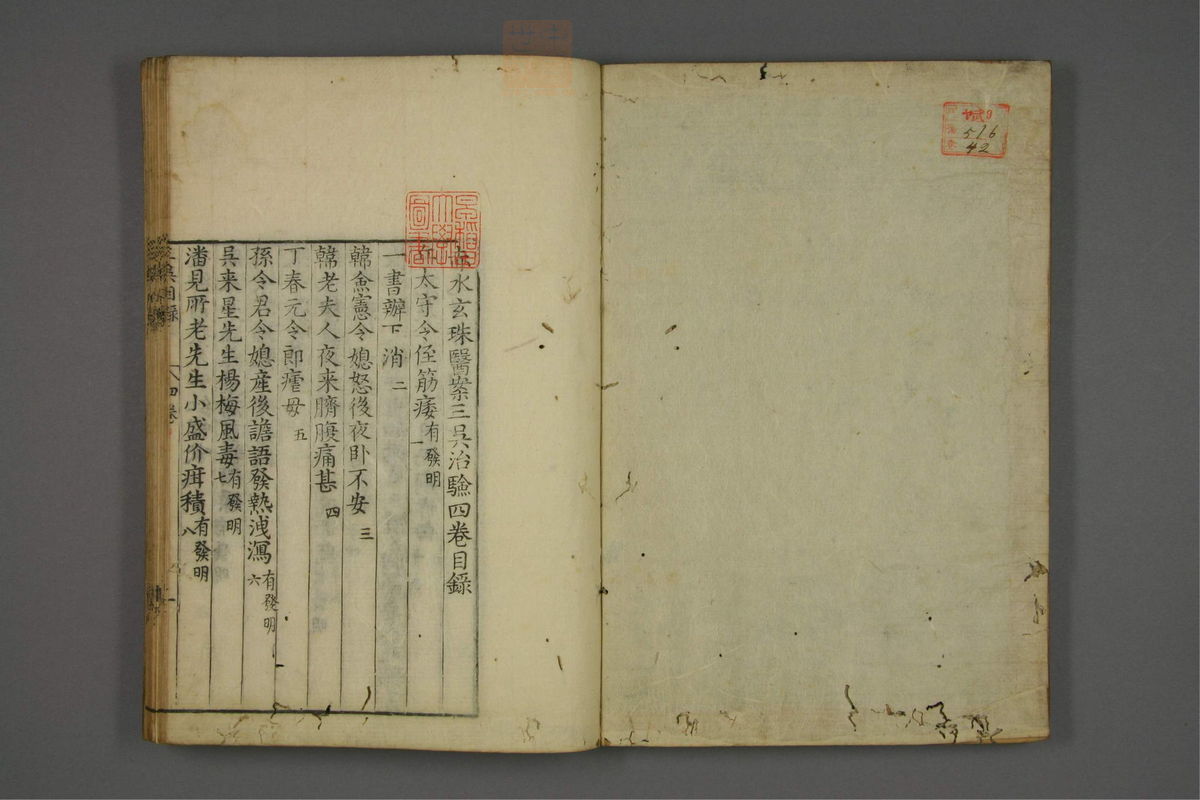 ヤ9
516
42
早稲田大學圖書
赤水玄珠醫案三吳治驗四卷目錄
太守令侄筋痿有發明一
一書辦下消二
韓僉憲令媳怒後夜卧不安三
韓老夫人夜来臍腹痛甚四
丁春元令郎瘧母五
孫令君令媳産後譫語發熱洩瀉有發明六
吳来星先生楊梅風毒有發明七
潘見所老先生小盛价疳積有發明八
三吳目錄 四卷 一